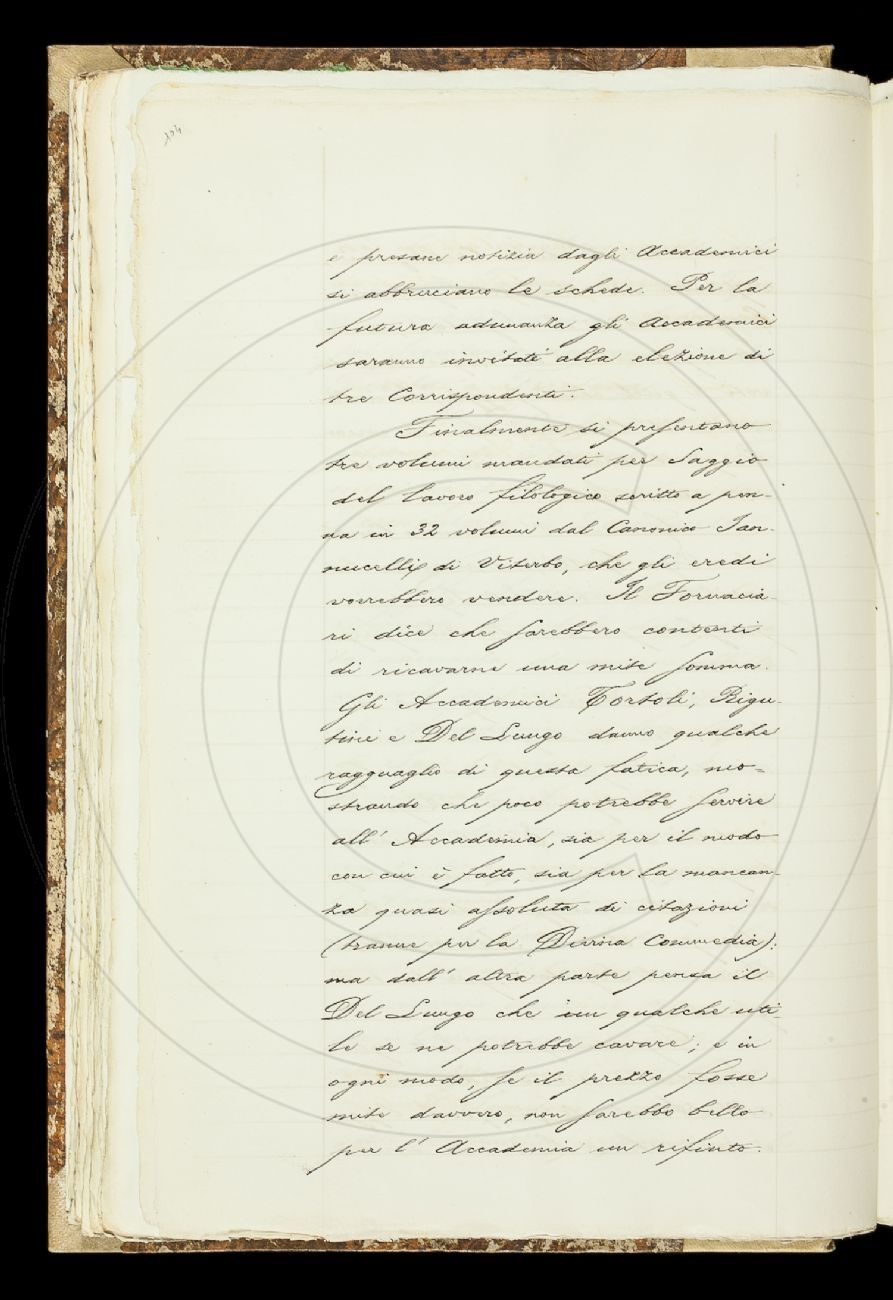 104
e presane notizia dagli Accademici
si abbruciano le schede. Per la
futura adunanza gli Accademici
saranno invitati alla elezione di
tre Corrispondenti.
Finalmente si presentano
tre volumi mandati per Saggio
del lavoro filologico scritto a pen-
na in 32 volumi dal Canonico Ian-
nucelli di Viterbo, che gli eredi
vorrebbero vendere. Il Fornacia-
ri dice che sarebbero contenti
di ricavarne una mite somma.
Gli Accademici Tortoli, Rigu-
tini e Del Lungo danno qualche
ragguaglio di questa fatica, mo-
strando che poco potrebbe servire
all' Accademia, sia per il modo
con cui è fatto, sia per la mancan-
za quasi assoluta di citazioni
(tranne per la Divina Commedia):
ma dall' altra parte pensa il
Del Lungo che un qualche uti-
le se ne potrebbe cavare; e in
ogni modo, se il prezzo fosse
mite davvero, non sarebbe bello
per l' Accademia un rifiuto.